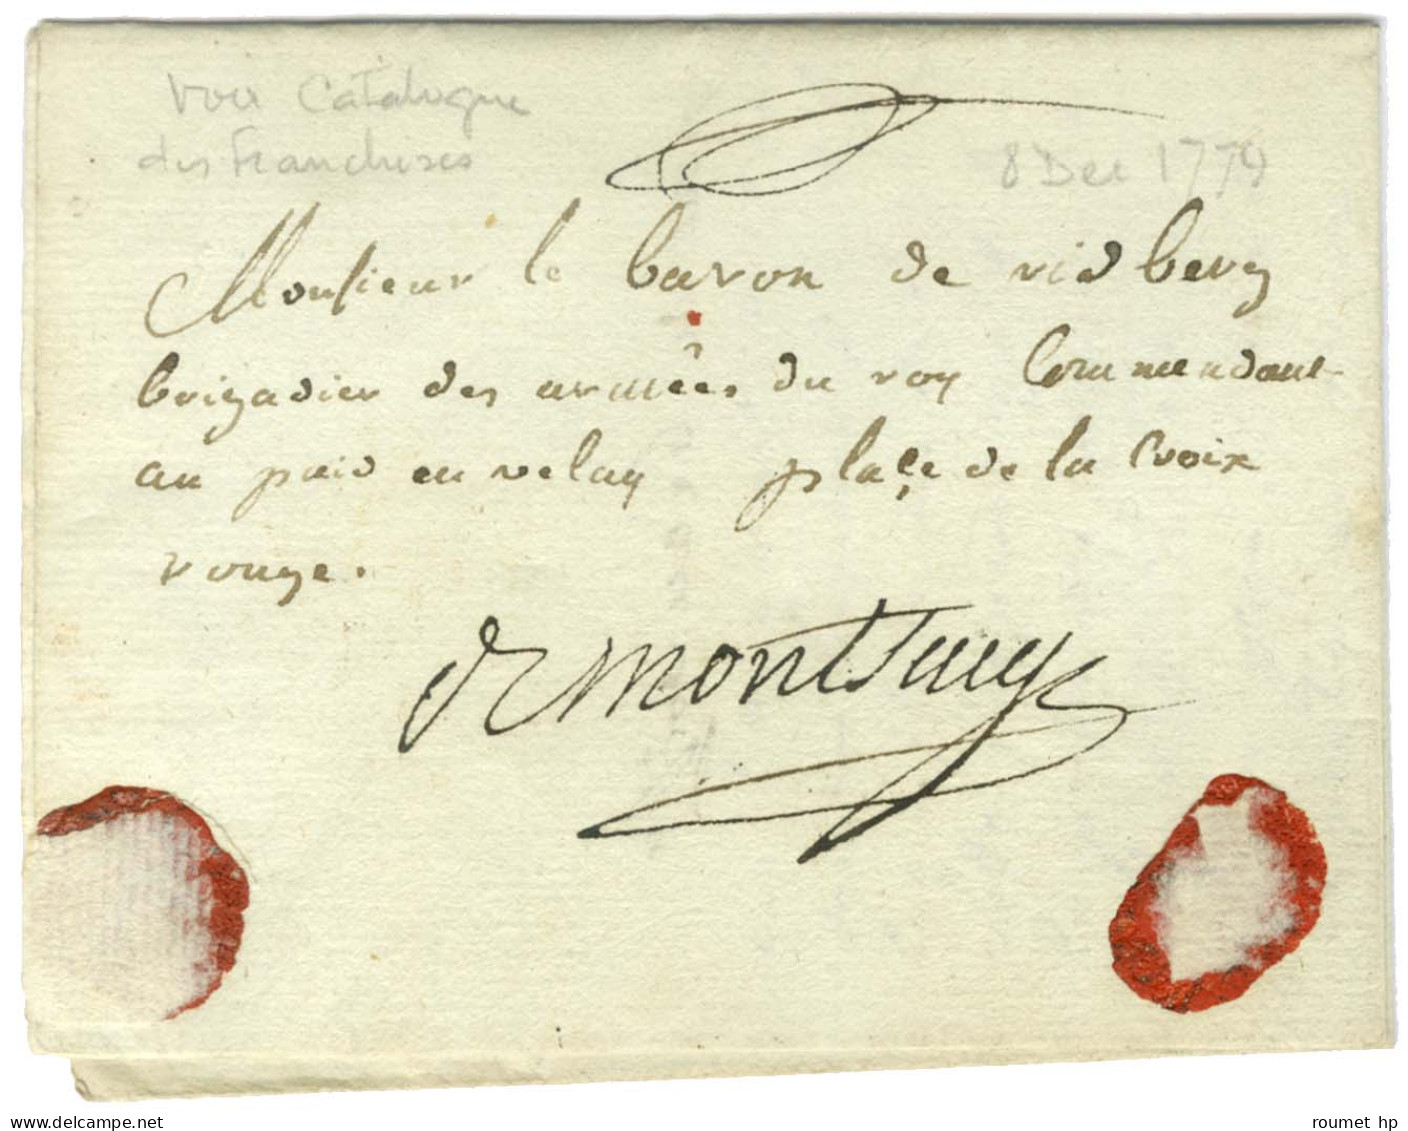 Voir Catalogue
des Franchises
8 Dec 1779
Monsieur le baron de ridberg
brigadier des armêês du roy Commendant
au puid en velay place de la Croix
rouge.
roumet hp